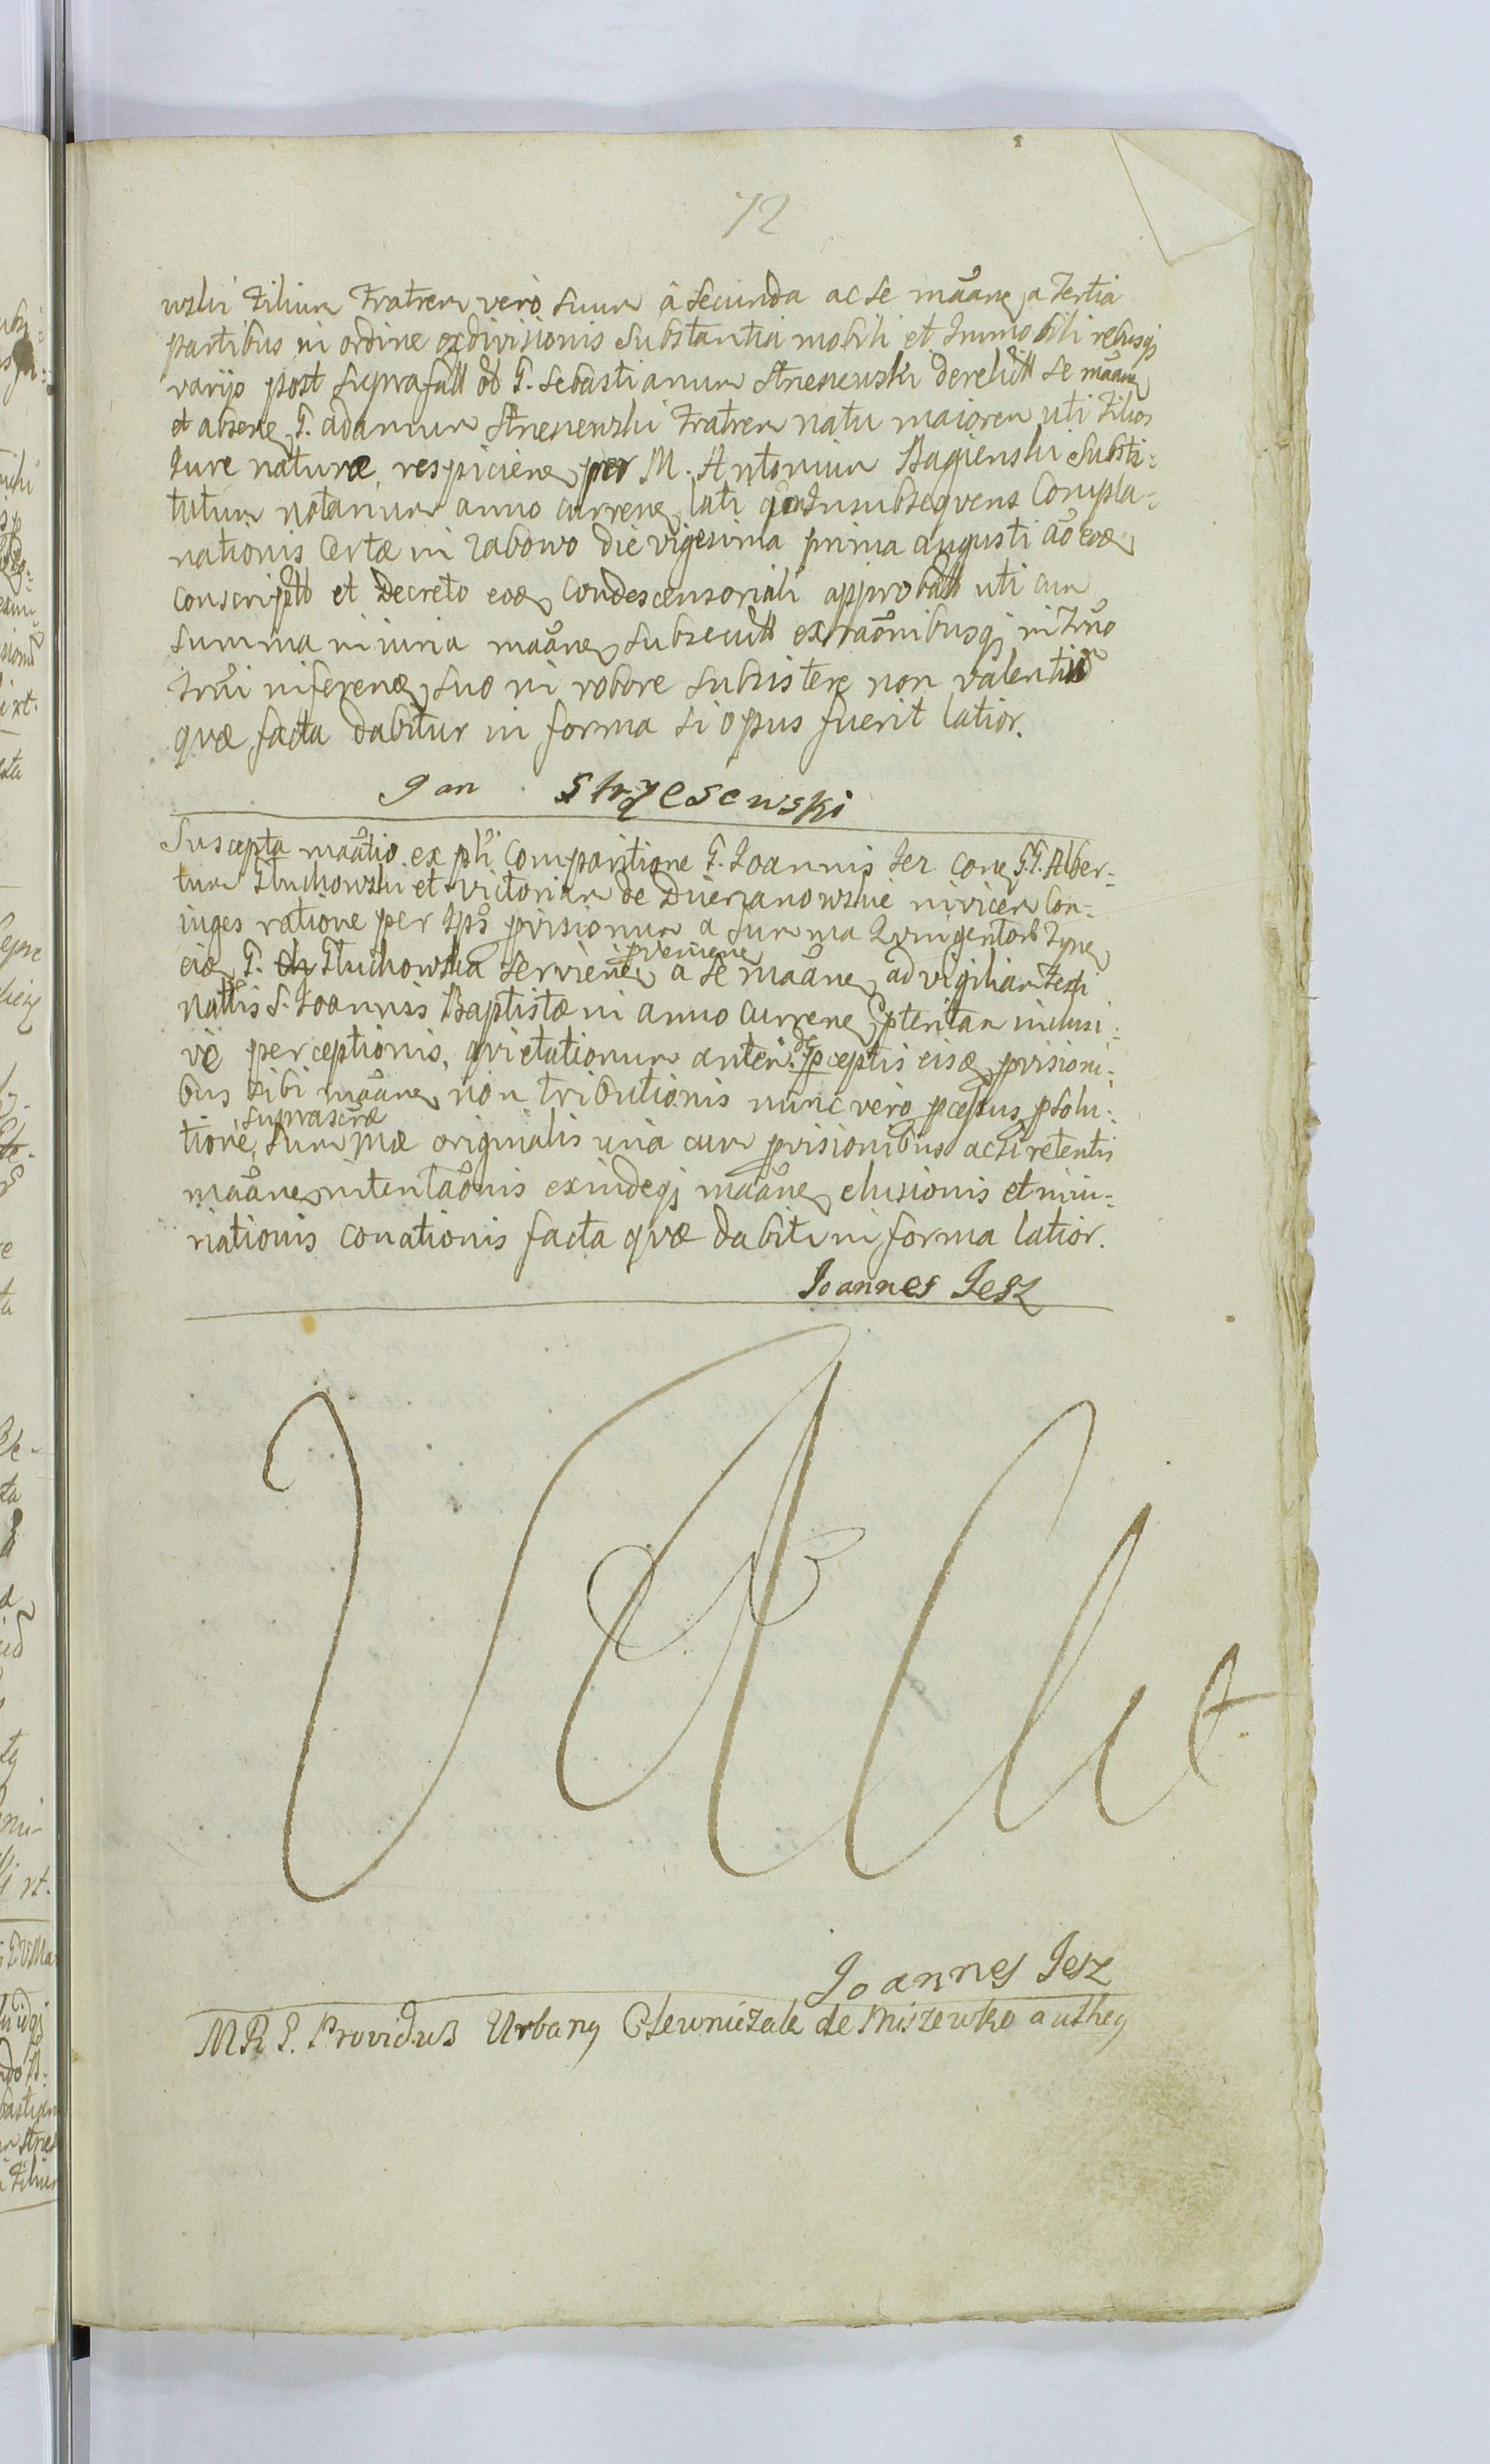 72
wski Filium Fratrem verò suum à secunda ac se mãane a Tertia
partibus in ordine exdivisionis substantia mobili et Immobili rebusqȝ
varijs post suprafatt ol G. Sebastianum Strzeszewski derelictt se mãane
et absene G. adamum Strzeszewski Fratrem natu maiorem uti Filios
Iure naturæ respiciene per M. Antonium Bagienski substi:
tutum notarium anno currene lati insubseqvens Compla-
nationis certæ in Zabowo die vigesima prima augusti aõ eoæ
conscriptt et Decreto eoæ Condescensoriali approbatt uti cum
summa iniuria mãane subsecutt ex raõnibusqȝ in Trno
Trãi inferenæ suo in robore subsistere non valentiũ
qvæ facta dabitur in forma si opus fuerit latior.
Jan Strzesewski
Suscepta mãatio ex płi comparitione G. Joannis Jez cone G.G. Alber-
tum Głuchowski et Victoriam de Dzierzanowskie invicem Con-
iuges ratione per Ipś prvisionum a summa Qvingentorȝ Tyne
eiæ G. Głuchowska serviene proveniene a se mãane ad vigiliam Festi
Nattis S. Joannis Baptistæ in anno currene pteritam inclusi:
vè perceptionis, qvietationum anteri. de pceptis eisæ prvisioni:
bus sibi mãane non tributionis nunc vero pcepsus psolu:
tione suprascræ summæ originalis una cum prvisionibus acti retentis
mãane intentaõnis exindeqȝ mãane elusionis et iniu:
riationis conationis facta qvæ dabitr in forma latior.
Joannes Jesz
VAlit
Joannes Jesz
MRG. Providus Urbang de Miszewkoautheg